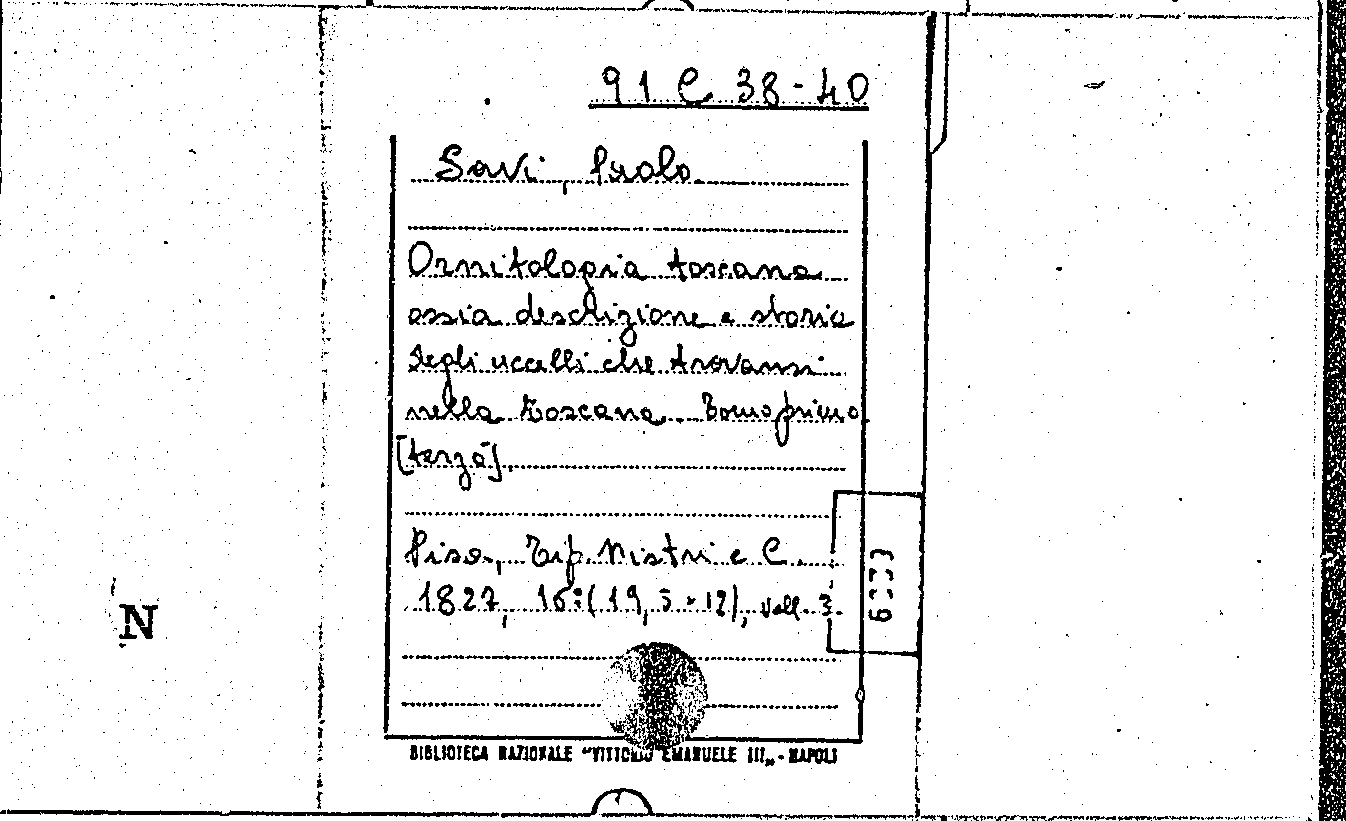 91 C 38-40
Savi, Paolo
Ornitologia toscana
ossia descrizione e storia
degli uccelli che trovansi
nella Toscana. Tomo primo
[terzo].
Pisa, Tip. Nistri e C.
1827, 16:(19,5×12), voll. 3.
N
BIBLIOTECA NAZIONALE "VITTORIO EMANUELE III„ - NAPOLI